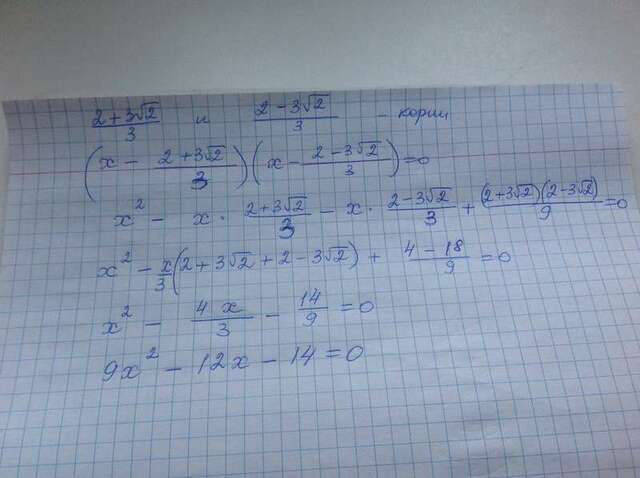 (2+3√2)/3 и (2-3√2)/3 - корни
(x - (2+3√2)/3)(x - (2-3√2)/3)=0
x² - x · (2+3√2)/3 - x · (2-3√2)/3 + (2+3√2)(2-3√2)/9 =0
x² - x/3(2+3√2+2-3√2) + (4-18)/9 =0
x² - 4x/3 - 14/9 =0
9x² - 12x - 14 =0